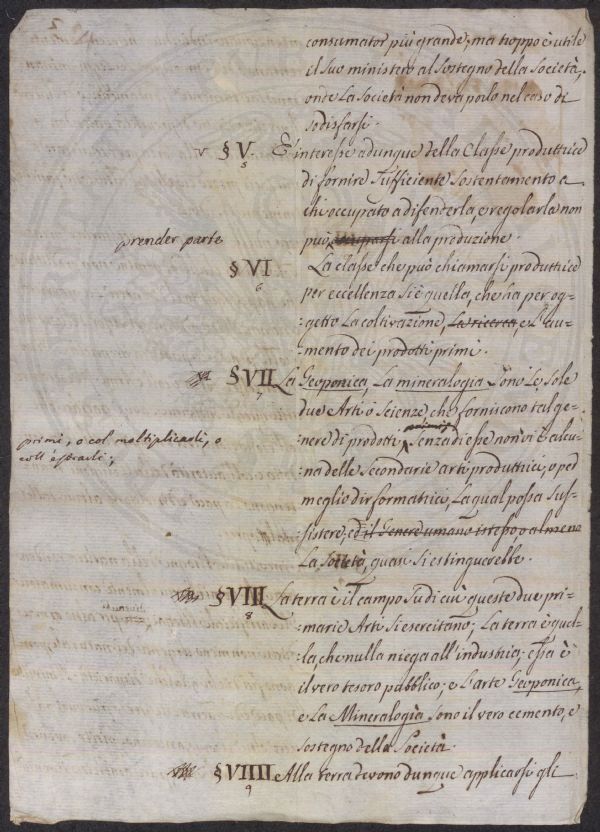 consumator più grande; ma troppo è utile
il suo ministero al sostegno della Società,
onde la Società non deva porlo nel caso di
sodisfarsi.
§ V. E' interesse adunque della Classe produttrice
5
di fornire sufficiente sostentamento a
chi occupato a difenderla, e regolarla non
prender parte
può occuparsi alla produzione.
§ VI La classe che può chiamarsi produttrice
6
per eccellenza si è quella, che ha per og-
:getto la coltivazione, la ricerca, e l'au-
:mento dei prodotti primi.
§ VII La Geoponica, La mineralogia sono le sole
7
due Arti o Scienze, che forniscono tal ge-
primi, o col moltiplicarli, o
coll'estrarli;
nere di prodotti, senza di esse non vi è alcu-
na delle secondarie arti produttrici, o per
meglio dir formattrici, la qual possa sus-
:sistere, ed il Genere umano istesso o almeno
La Società, quasi si estinguerebbe.
§ VIII La terra è il campo su di cui queste due pri-
8
:marie Arti si esercitano; La terra è quel-
:la, che nulla niega all'industria; essa è
il vero tesoro pubblico; e l'arte Geoponica,
e la Mineralogia sono il vero cemento, e
sostegno della Società.
§ VIIII Alla terra devono dunque applicarsi gli
9